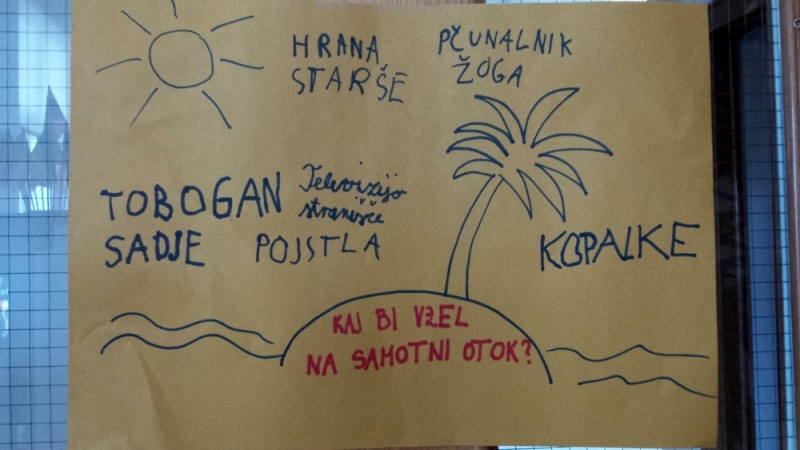 HRANA
STARŠE
PČUNALNIK
ŽOGA
TOBOGAN
Televizijo
stranišče
SADJE
POJSTLA
KOPALKE
KAJ BI VZEL
NA SAMOTNI OTOK?